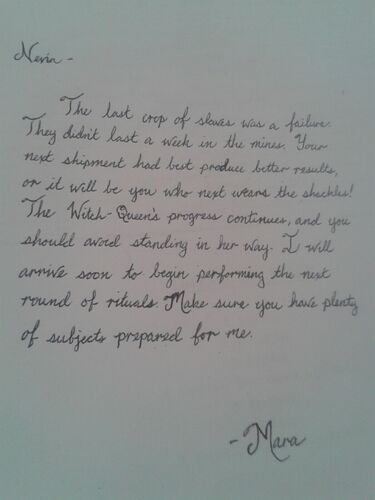 Nevin -
The last crop of slaves was a failure.
They didn't last a week in the mines. Your
next shipment had best produce better results,
or it will be you who next wears the shackles!
The Witch-Queen's progress continues, and you
should avoid standing in her way. I will
arrive soon to begin performing the next
round of rituals. Make sure you have plenty
of subjects prepared for me.
- Mara